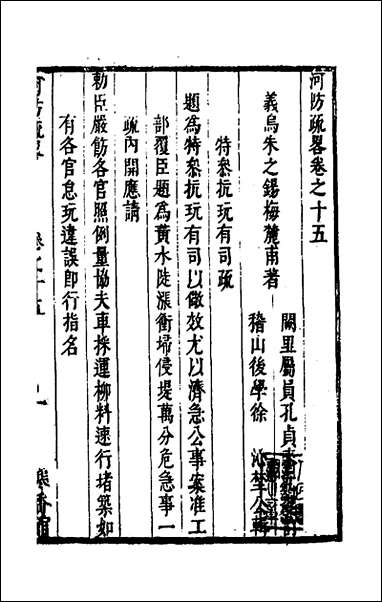 河防疏畧卷之十五
義烏朱之錫梅麓甫著
闕里屬員孔貞
稽山後學徐 沁埜公輯
特叅抗玩有司疏
題為特叅抗玩有司以儆效尤以濟急公事案准工
部覆臣題為黄水陡漲衝埽侵堤萬分危急事一
疏內開應請
勅臣嚴飭各官照例量協夫車採運柳料速行堵築如
有各官怠玩違誤即行指名